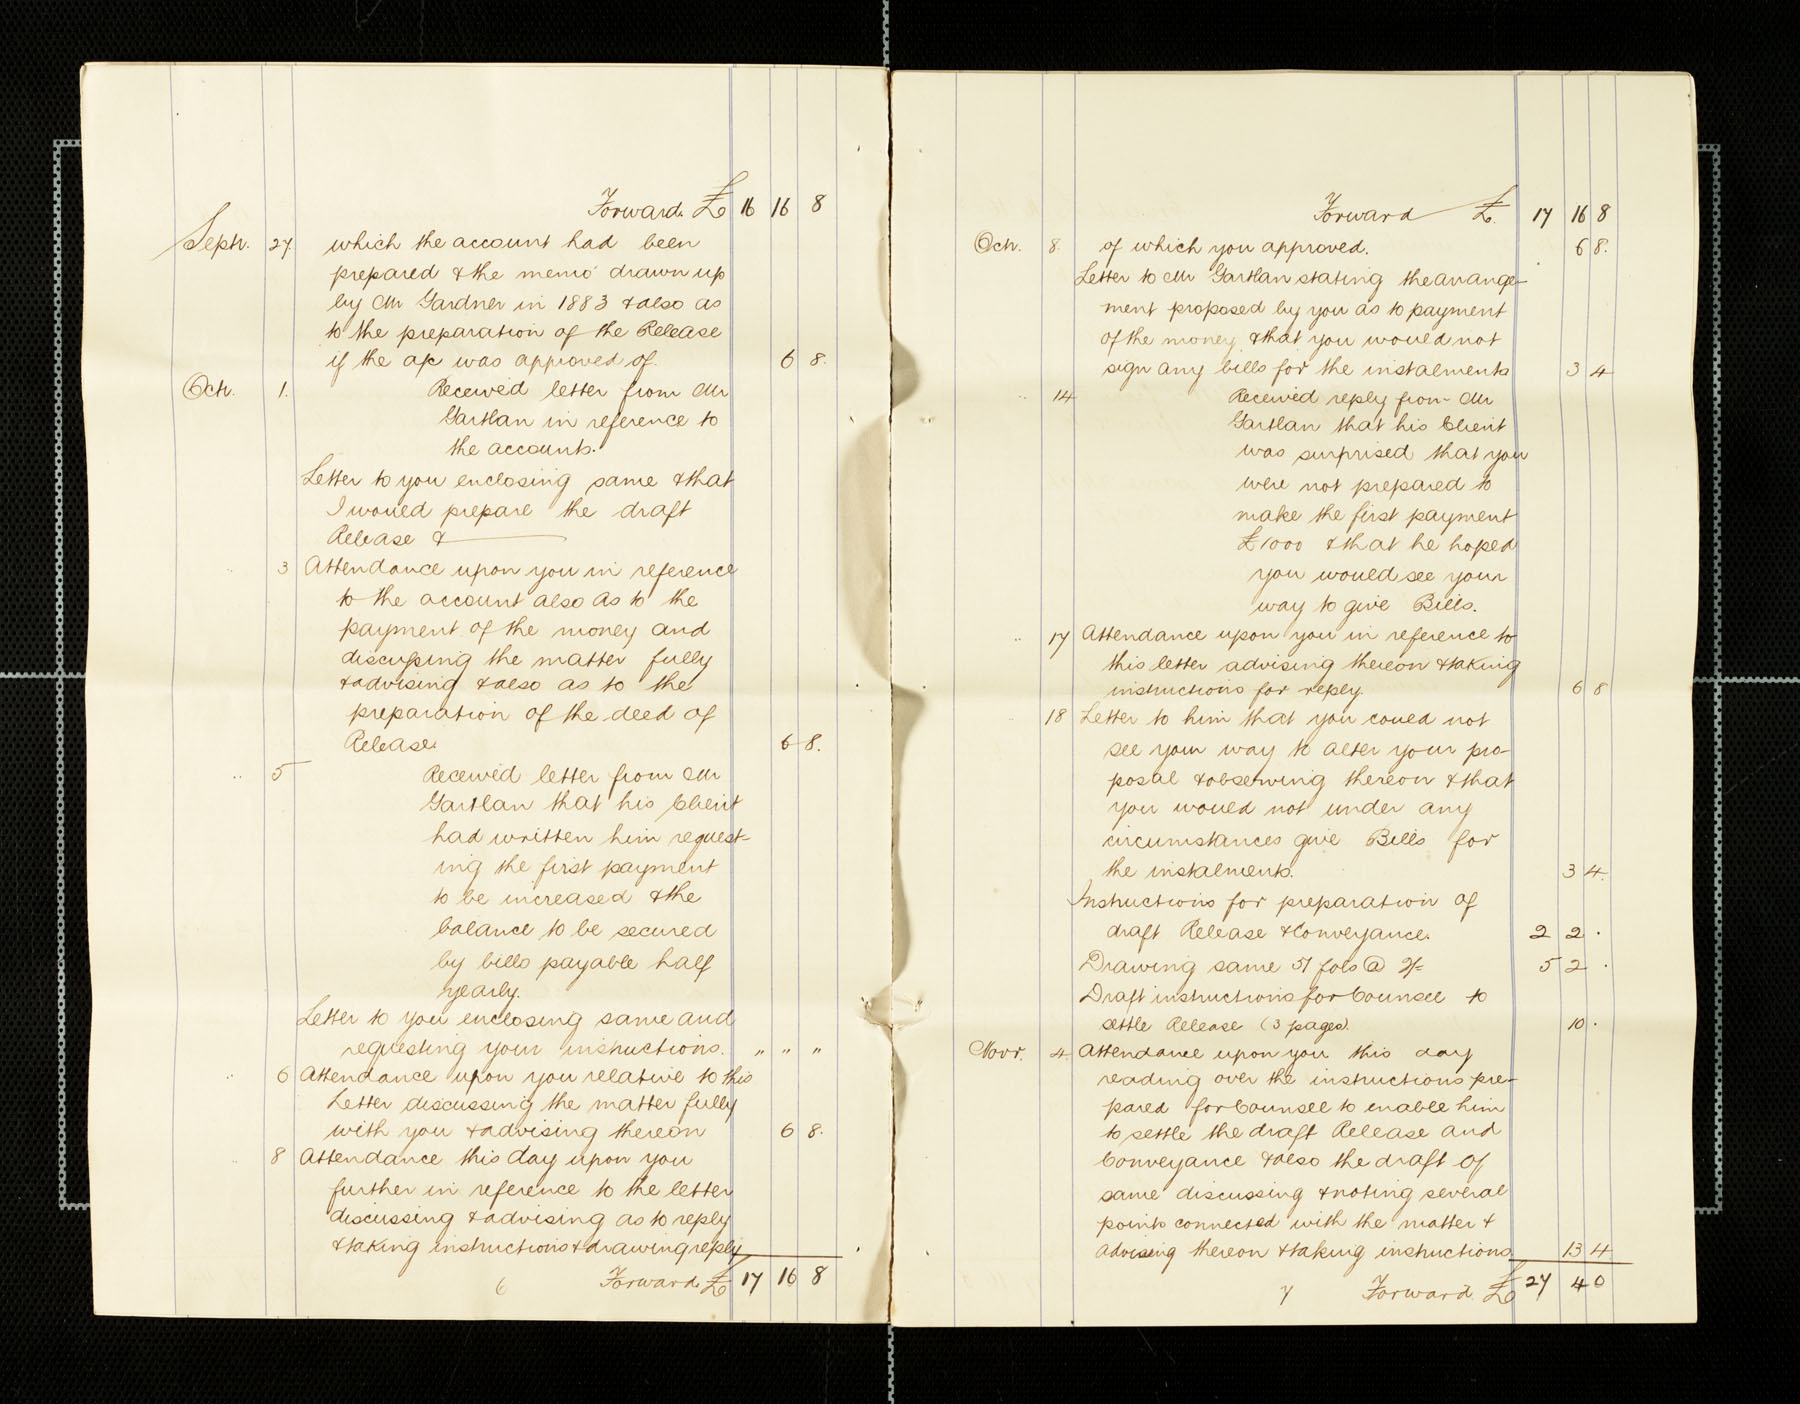 Forward. £ 16 16 8
Sepr. 27. which the account had been
prepared & the memo drawn up
by Mr Gardner in 1883 & also as
to the preparation of the Release
if the a/c was approved of. 6 8.
Oct. 1. Received letter from Mr
Gartlan in reference to
the accounts.
Letter to you enclosing same & that
I would prepare the draft
Release &
" 3 Attendance upon you in reference
to the account also as to the
payment of the money and
discussing the matter fully
& advising & also as to the
preparation of the deed of
Release. 6 8.
" 5 Received letter from Mr
Gartlan that his Client
had written him request-
ing the first payment
to be increased & the
balance to be secured
by bills payable half
yearly.
Letter to you enclosing same and
requesting your instructions. " " "
" 6 Attendance upon you relative to this
Letter discussing the matter fully
with you & advising thereon 6 8.
" 8 Attendance this day upon you
further in reference to the letter
discussing & advising as to reply
& taking instructions & drawing reply
6 Forward £ 17 16 8
Forward £. 17 16 8
Oct. 8. of which you approved. 6 8.
Letter to Mr Gartlan stating the arrange-
ment proposed by you as to payment
of the money & that you would not
sign any bills for the instalments 3 4
" 14 Received reply from Mr
Gartlan that his Client
was surprised that you
were not prepared to
make the first payment
£1000 & that he hoped
you would see your
way to give Bills.
" 17 Attendance upon you in reference to
this letter advising thereon & taking
instructions for reply. 6 8
18 Letter to him that you could not
see your way to alter your pro-
posal & observing thereon & that
you would not under any
circumstances give Bills for
the instalments. 3 4.
Instructions for preparation of
draft Release & Conveyance. 2 2 .
Drawing same 51 fols @ 2/= 5 2 .
Draft instructions for Counsel to
settle Release (3 pages). 10 .
Novr. 4. Attendance upon you this day
reading over the instructions pre-
pared for Counsel to enable him
to settle the draft Release and
Conveyance & also the draft of
same discussing & noting several
points connected with the matter &
advising thereon & taking instructions. 13 4
7 Forward. £ 27 4 0